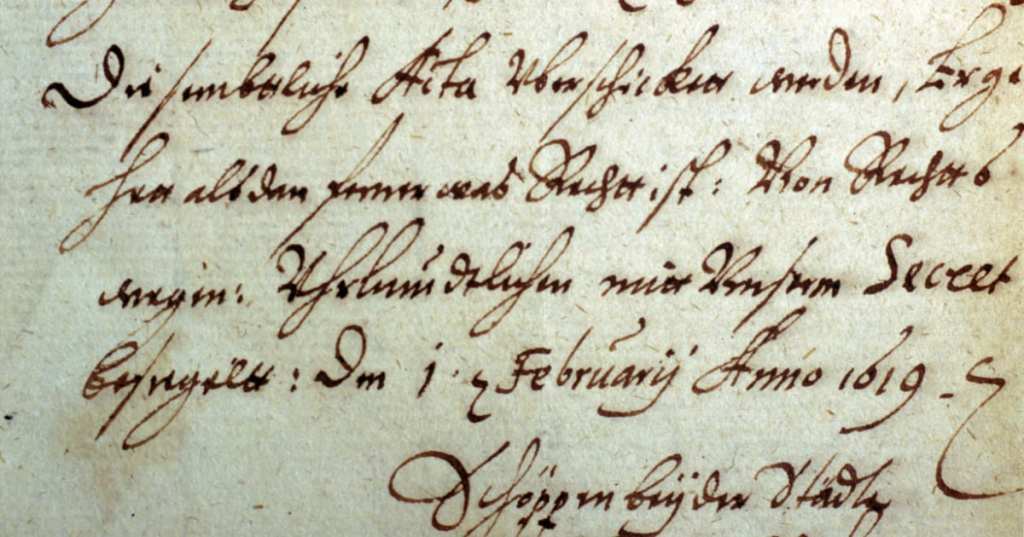 Die sembtliche Acta Vberschicket werden, Erge
het alsdan ferner was Recht ist: Von Rechtts
wegen: Vhrkundtlichen mitt Vnserm Secret
besiegeltt: Den 1. Februarij Anno 1619
Schöppen beÿ der Städte